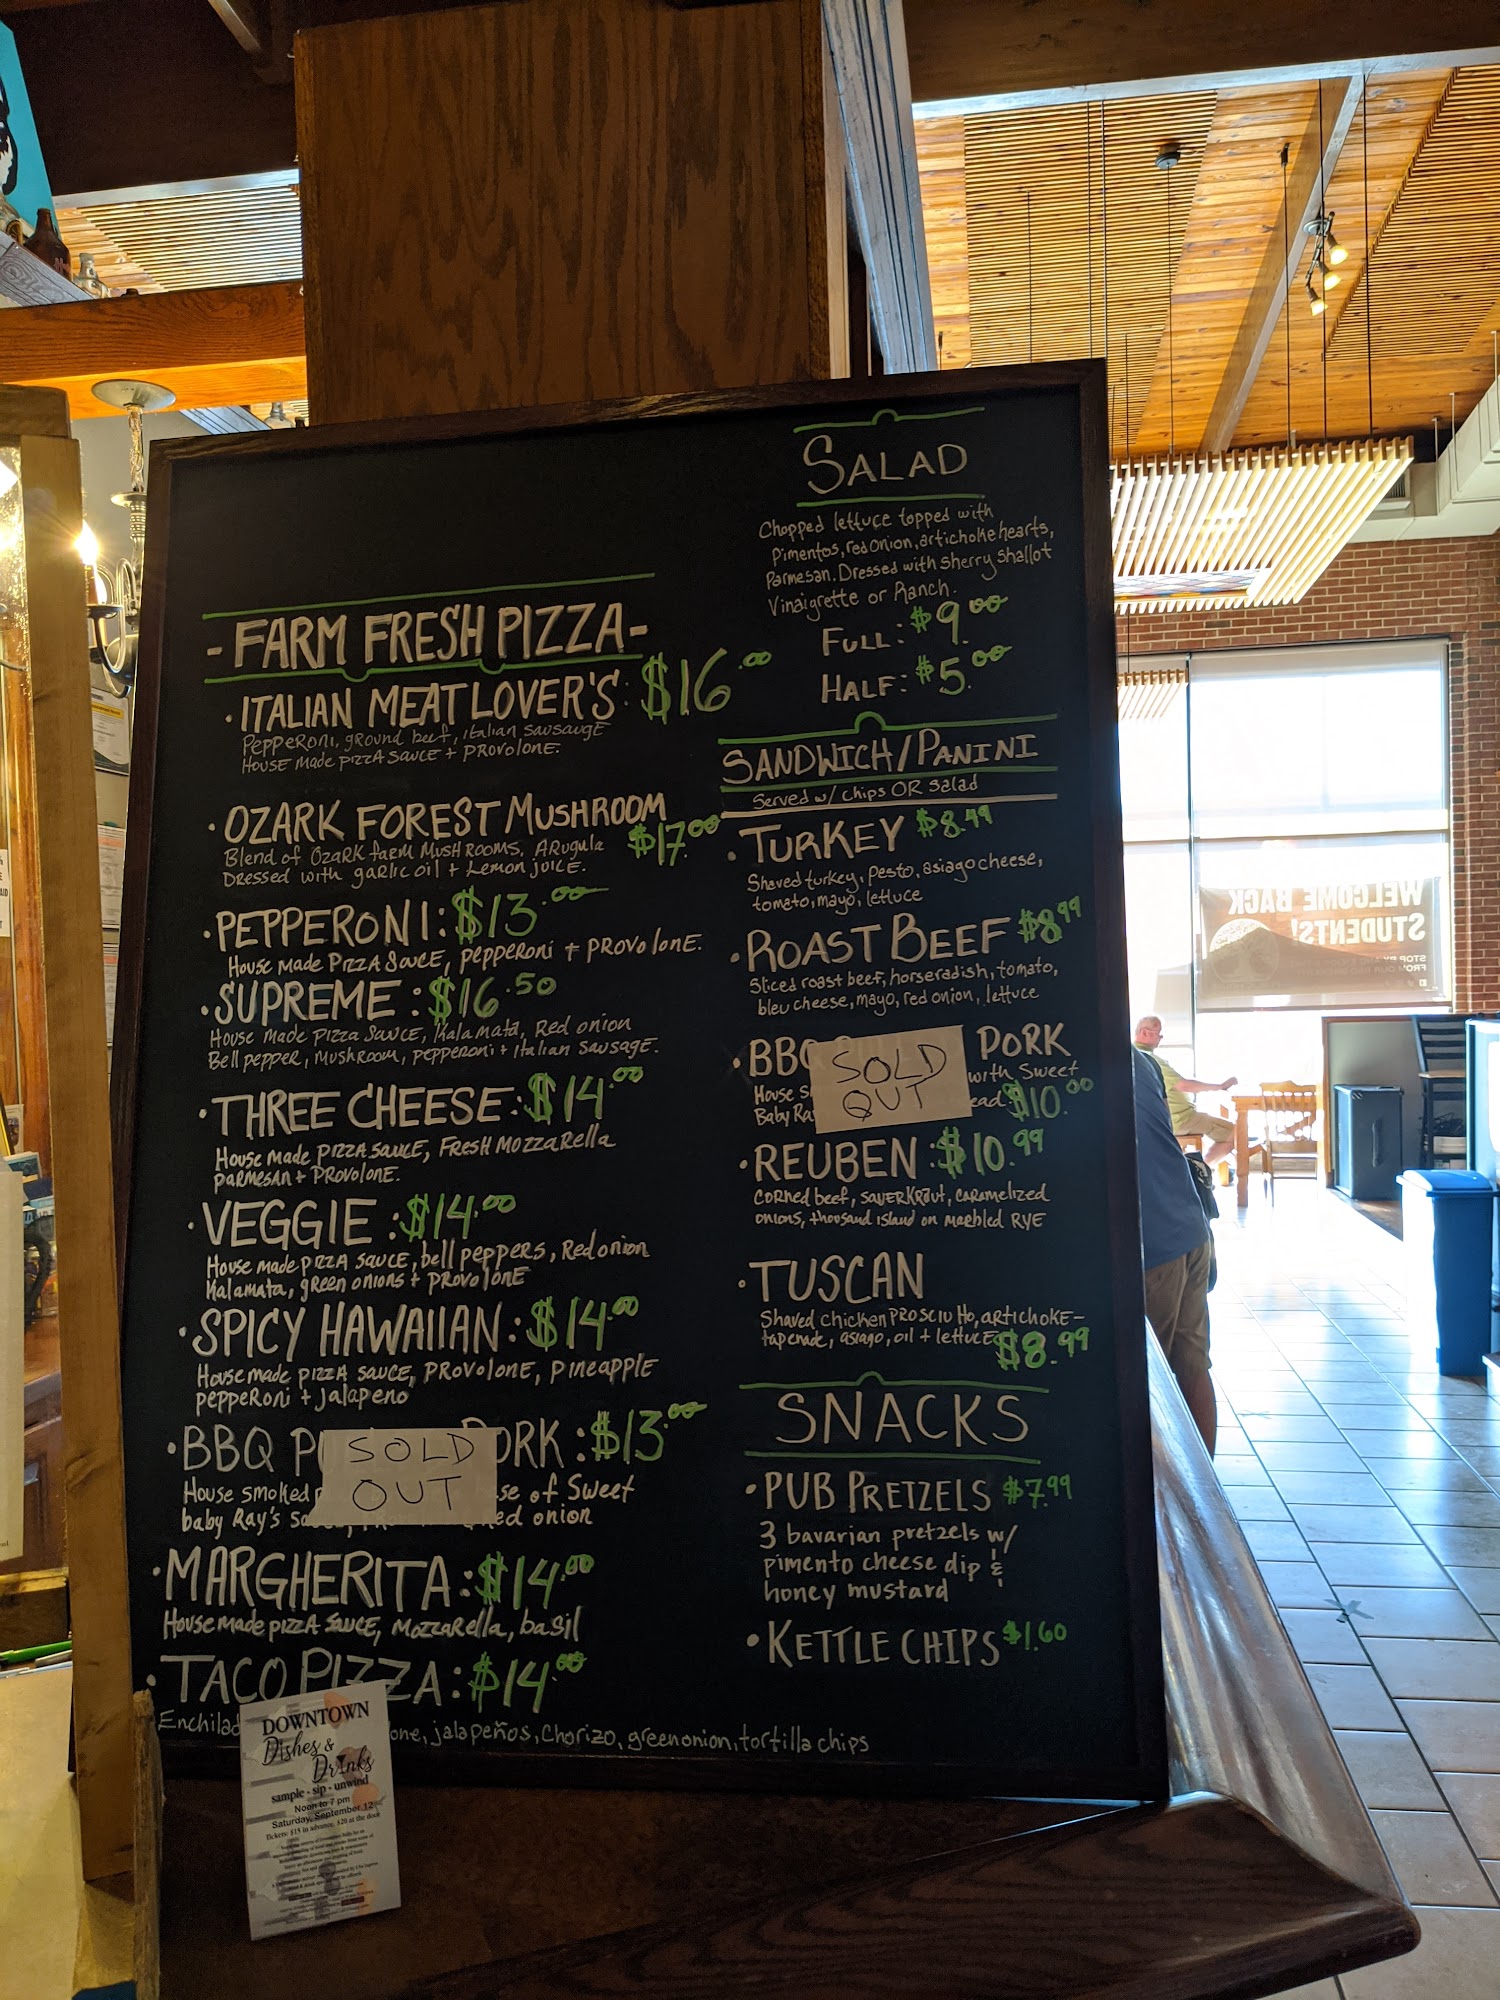 - FARM FRESH PIZZA -
· ITALIAN MEAT LOVER'S: $16.00
Pepperoni, ground beef, italian sausauge
House Made Pizza Sauce + Provolone.
· OZARK FOREST MUSHROOM
$17.00
Blend of Ozark farm Mushrooms, Arugula
Dressed with garlic oil + Lemon juice.
· PEPPERONI: $13.00
House Made Pizza Sauce, pepperoni + Provolone.
· SUPREME: $16.50
House Made Pizza Sauce, Kalamata, Red onion
Bell pepper, Mushroom, pepperoni + Italian Sausage.
· THREE CHEESE: $14.00
House Made Pizza Sauce, Fresh Mozzarella
Parmesan + Provolone.
· VEGGIE: $14.00
House made pizza sauce, bell peppers, Red onion
Kalamata, green onions + Provolone
· SPICY HAWAIIAN: $14.00
House made pizza sauce, Provolone, Pineapple
pepperoni + jalapeno
· BBQ P ORK: $13.00
SOLD
OUT
House smoked se of Sweet
baby Ray's sa ed onion
· MARGHERITA: $14.00
House made pizza sauce, Mozzarella, basil
· TACO PIZZA: $14.00
Enchilad one, jalapeños, Chorizo, green onion, tortilla chips
SALAD
Chopped lettuce topped with
Pimentos, red onion, artichoke hearts,
Parmesan. Dressed with Sherry shallot
Vinaigrette or Ranch.
FULL: $9.00
HALF: $5.00
SANDWICH/PANINI
Served w/ chips OR Salad
· TURKEY $8.49
Shaved turkey, pesto, asiago cheese,
tomato, mayo, lettuce
· ROAST BEEF $8.99
Sliced roast beef, horseradish, tomato,
bleu cheese, mayo, red onion, lettuce
· BBQ PORK
SOLD
OUT
House s with Sweet
Baby Ra ead. $10.00
· REUBEN: $10.99
Corned beef, sauerkraut, caramelized
onions, thousand island on marbled RYE
· TUSCAN
Shaved chicken PROSCIUTTO, artichoke-
tapenade, asiago, oil + lettuce $8.99
SNACKS
· PUB PRETZELS $7.99
3 bavarian pretzels w/
pimento cheese dip &
honey mustard
· KETTLE CHIPS $1.60
DOWNTOWN
Dishes &
Drinks
sample - sip - unwind
Noon to 7 pm
Saturday, September 12
Tickets: $15 in advance, $20 at the door
WELCOME BACK
STUDENTS!